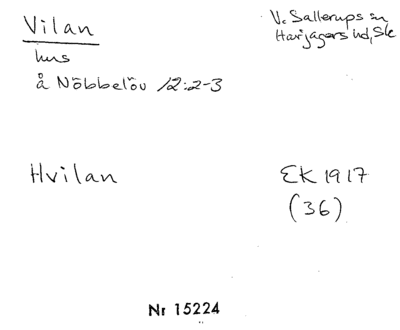 Vilan
V. Sallerups sn
Harjagers hd, Sk
hus
å Nöbbelöv 12:2-3
Hvilan
EK 1917
(36)
Nr 15224